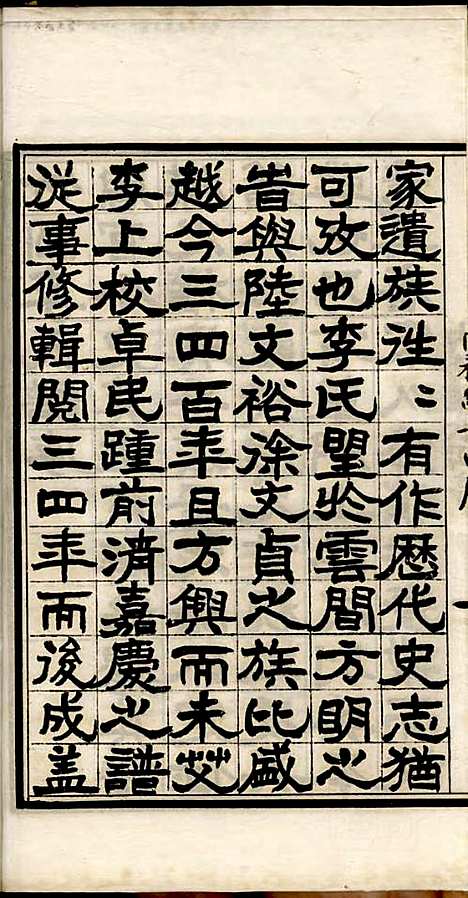 家遺族往〻有作歷代史志猶
可攷也李氏望於雲間方明之
旹與陸文裕徐文貞之族比盛
越今三四百年且方興而未艾
李上校卓民踵前清嘉慶之譜
從事修輯閱三四年而後成盖